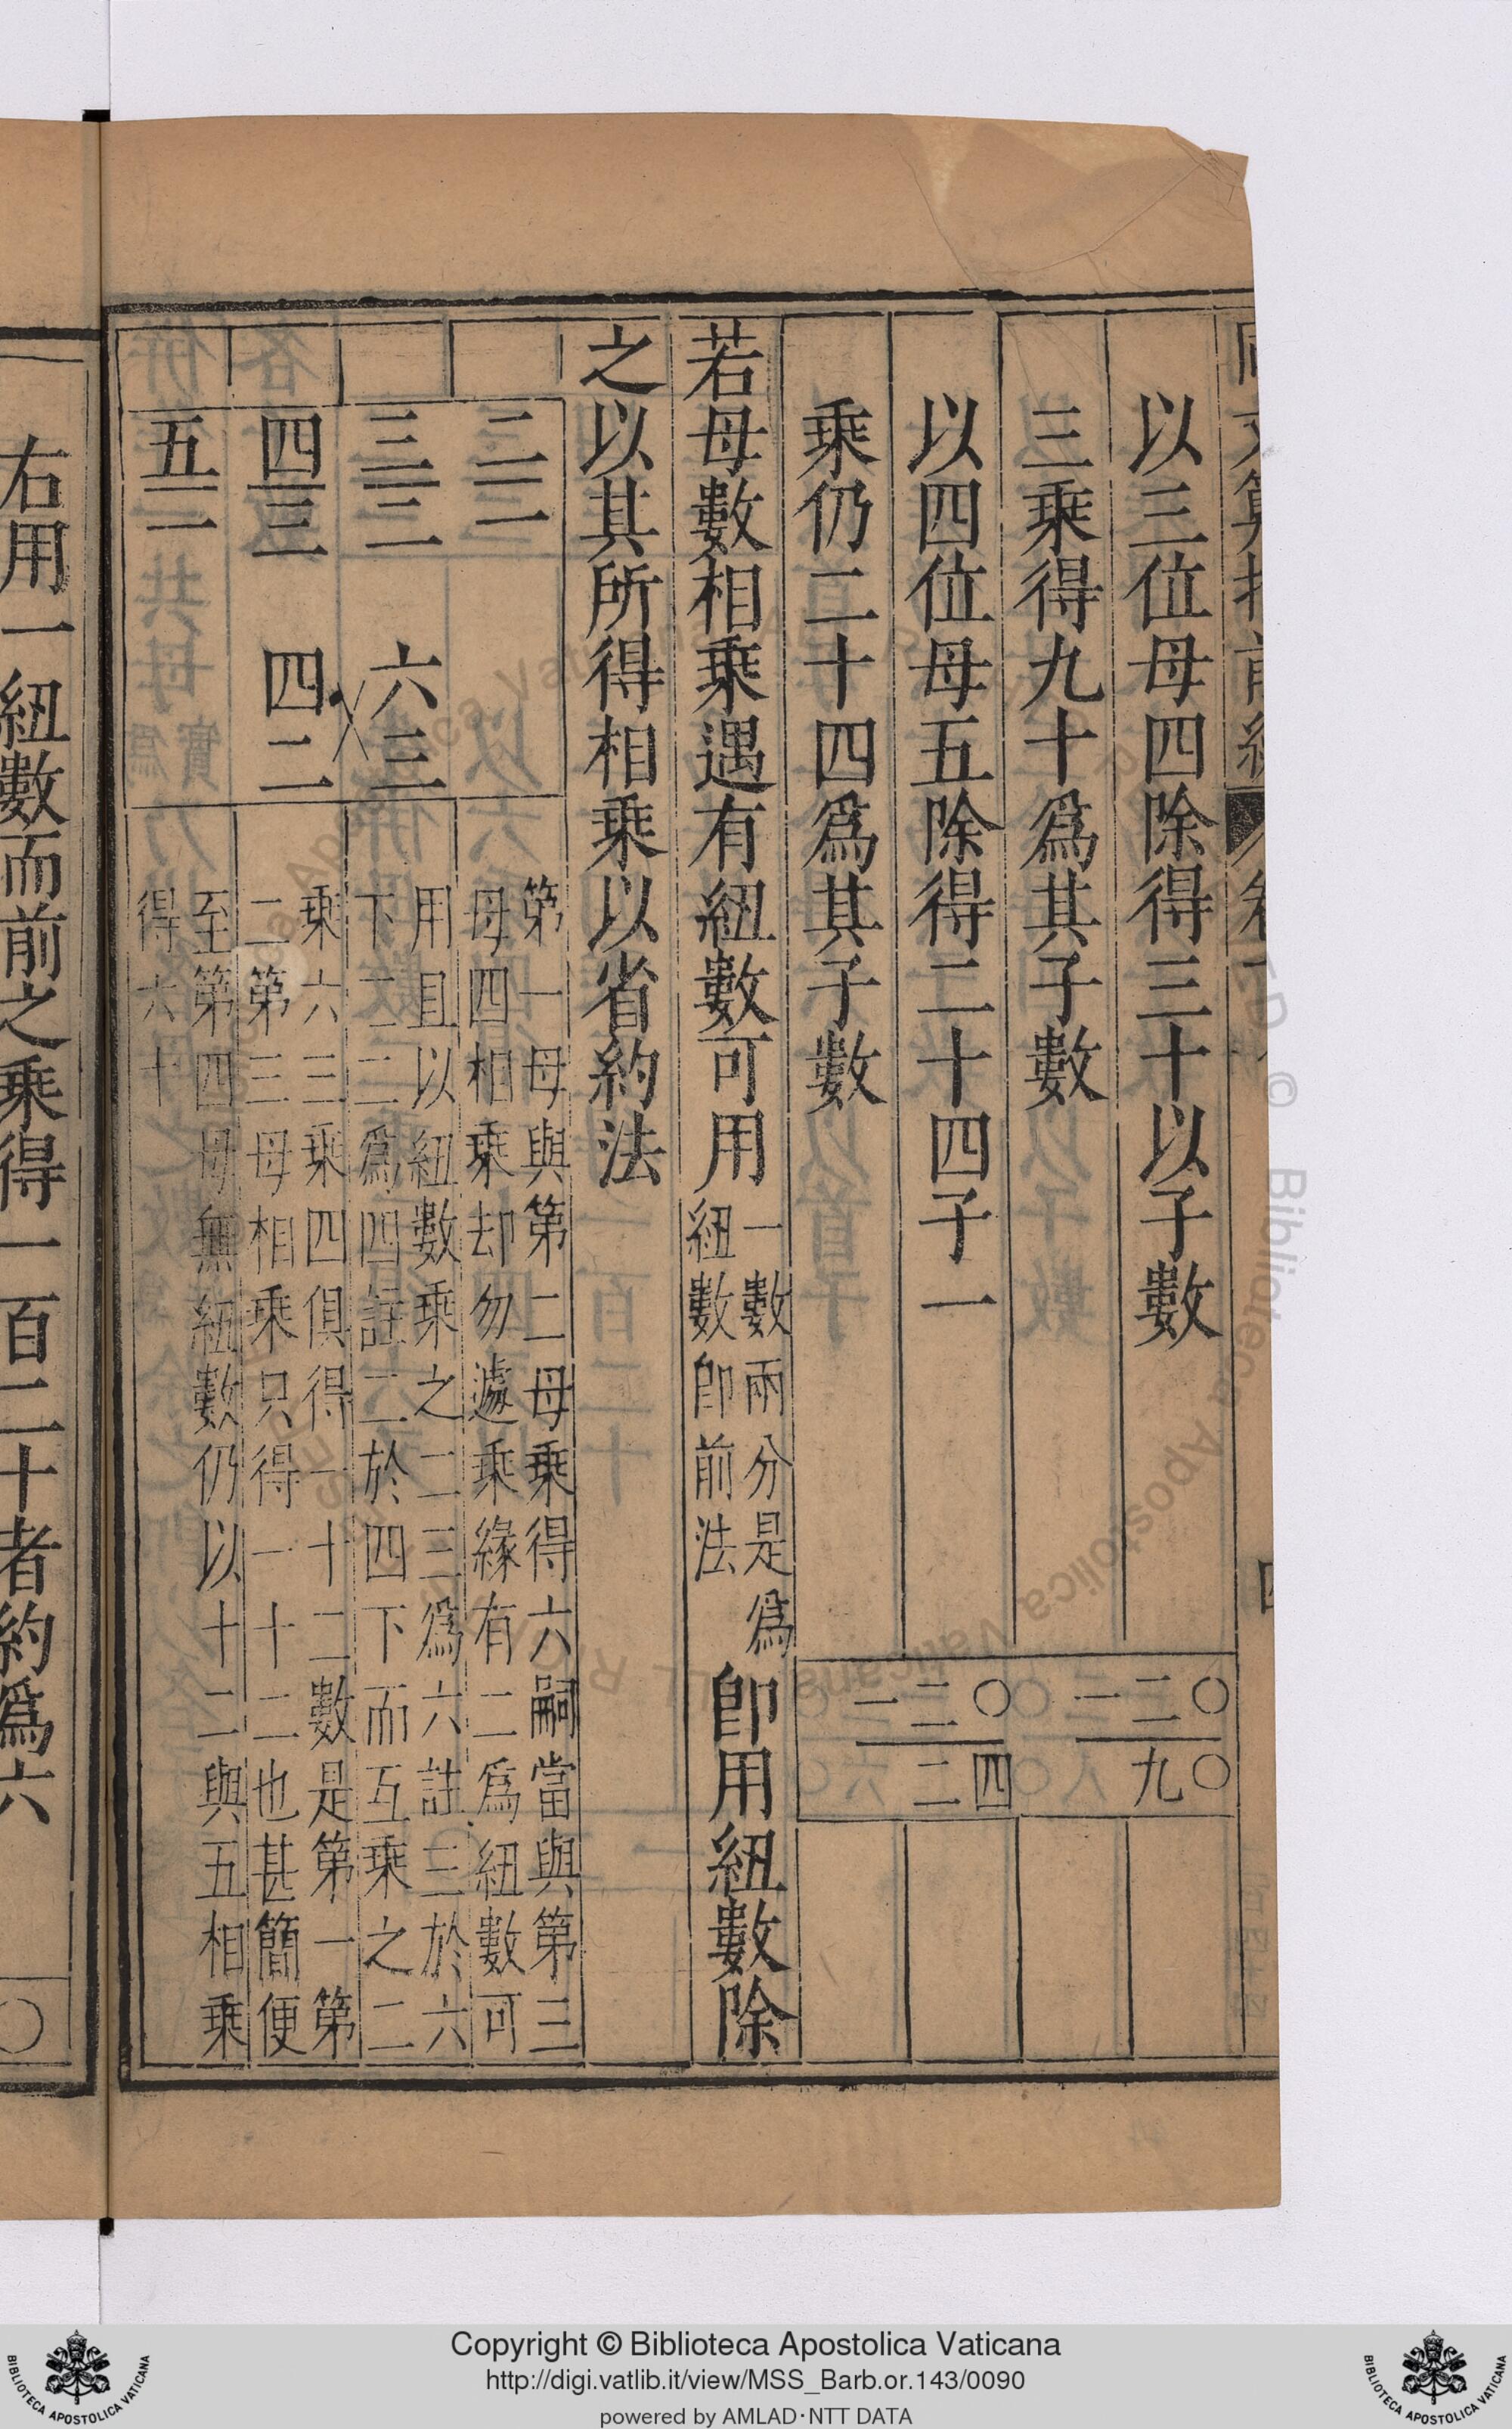 同文算指前編 卷下 四
以三位母四除得三十以子數
三乘得九十爲其子數
一二〇
九〇
以四位母五除得二十四子一
乘仍二十四爲其子數
一二〇
二四
若母數相乘遇有紐數可用
一數兩分是爲
紐數卽前法
卽用紐數除
之以其所得相乘以省約法
二 一
三 二
四 三
五 一
六 三
四 二
第一母與第二母乘得六嗣當與第三
母四相乘却勿遽乘緣有二爲紐數可
用且以紐數乘之二三爲六註三於六
下二二爲四註二於四下而互乘之二
乘六三乘四俱得一十二數是第一第
二第三母相乘只得一十二也甚簡便
至第四母無紐數仍以十二與五相乘
得六十
右用一紐數而前之乘得一百二十者約爲六
〇
Copyright © Biblioteca Apostolica Vaticana
http://digi.vatlib.it/view/MSS_Barb.or.143/0090
powered by AMLAD·NTT DATA
BIBLIOTECA APOSTOLICA VATICANA
BIBLIOTECA APOSTOLICA VATICANA